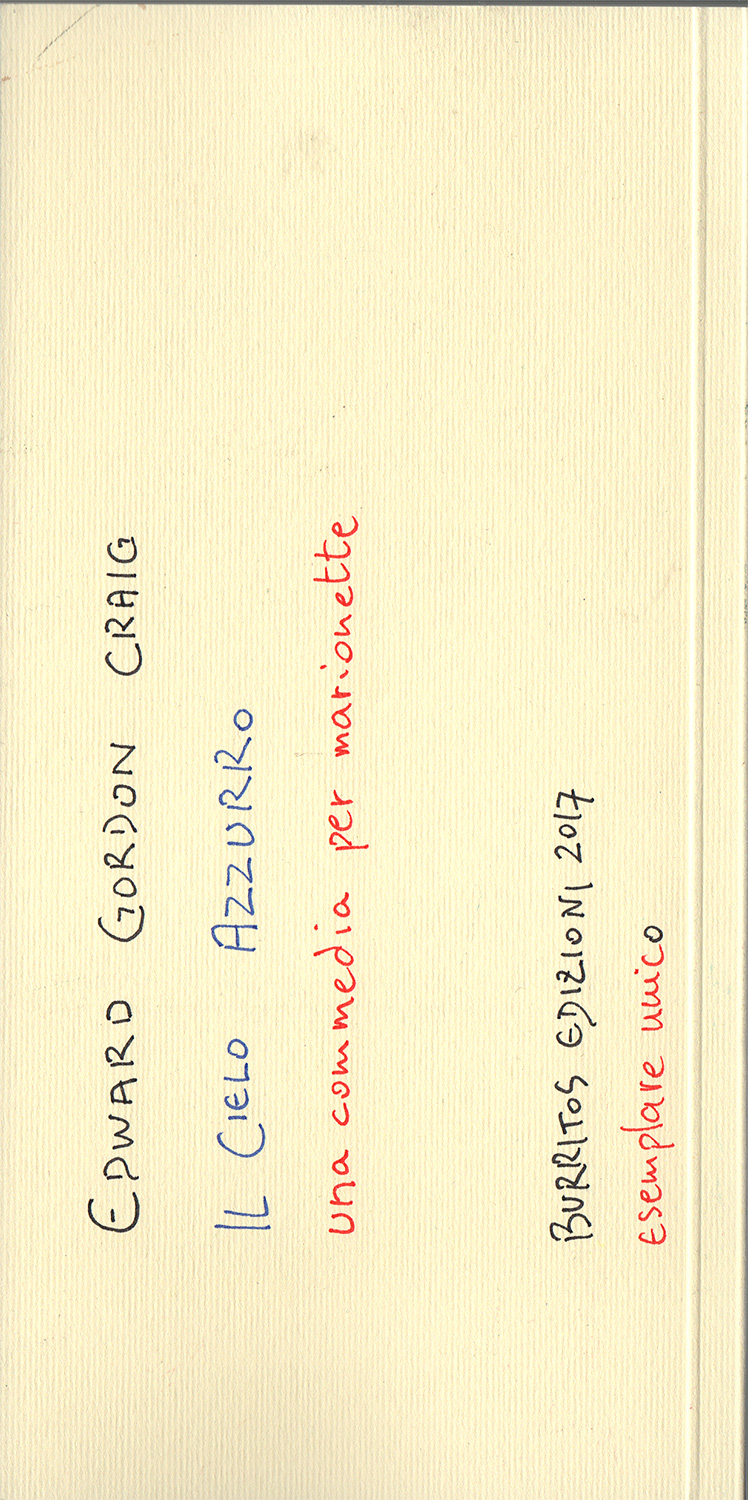 EDWARD GORDON CRAIG
IL CIELO AZZURRO
una commedia per marionette
BURRITOS EDIZIONI 2017
esemplare unico